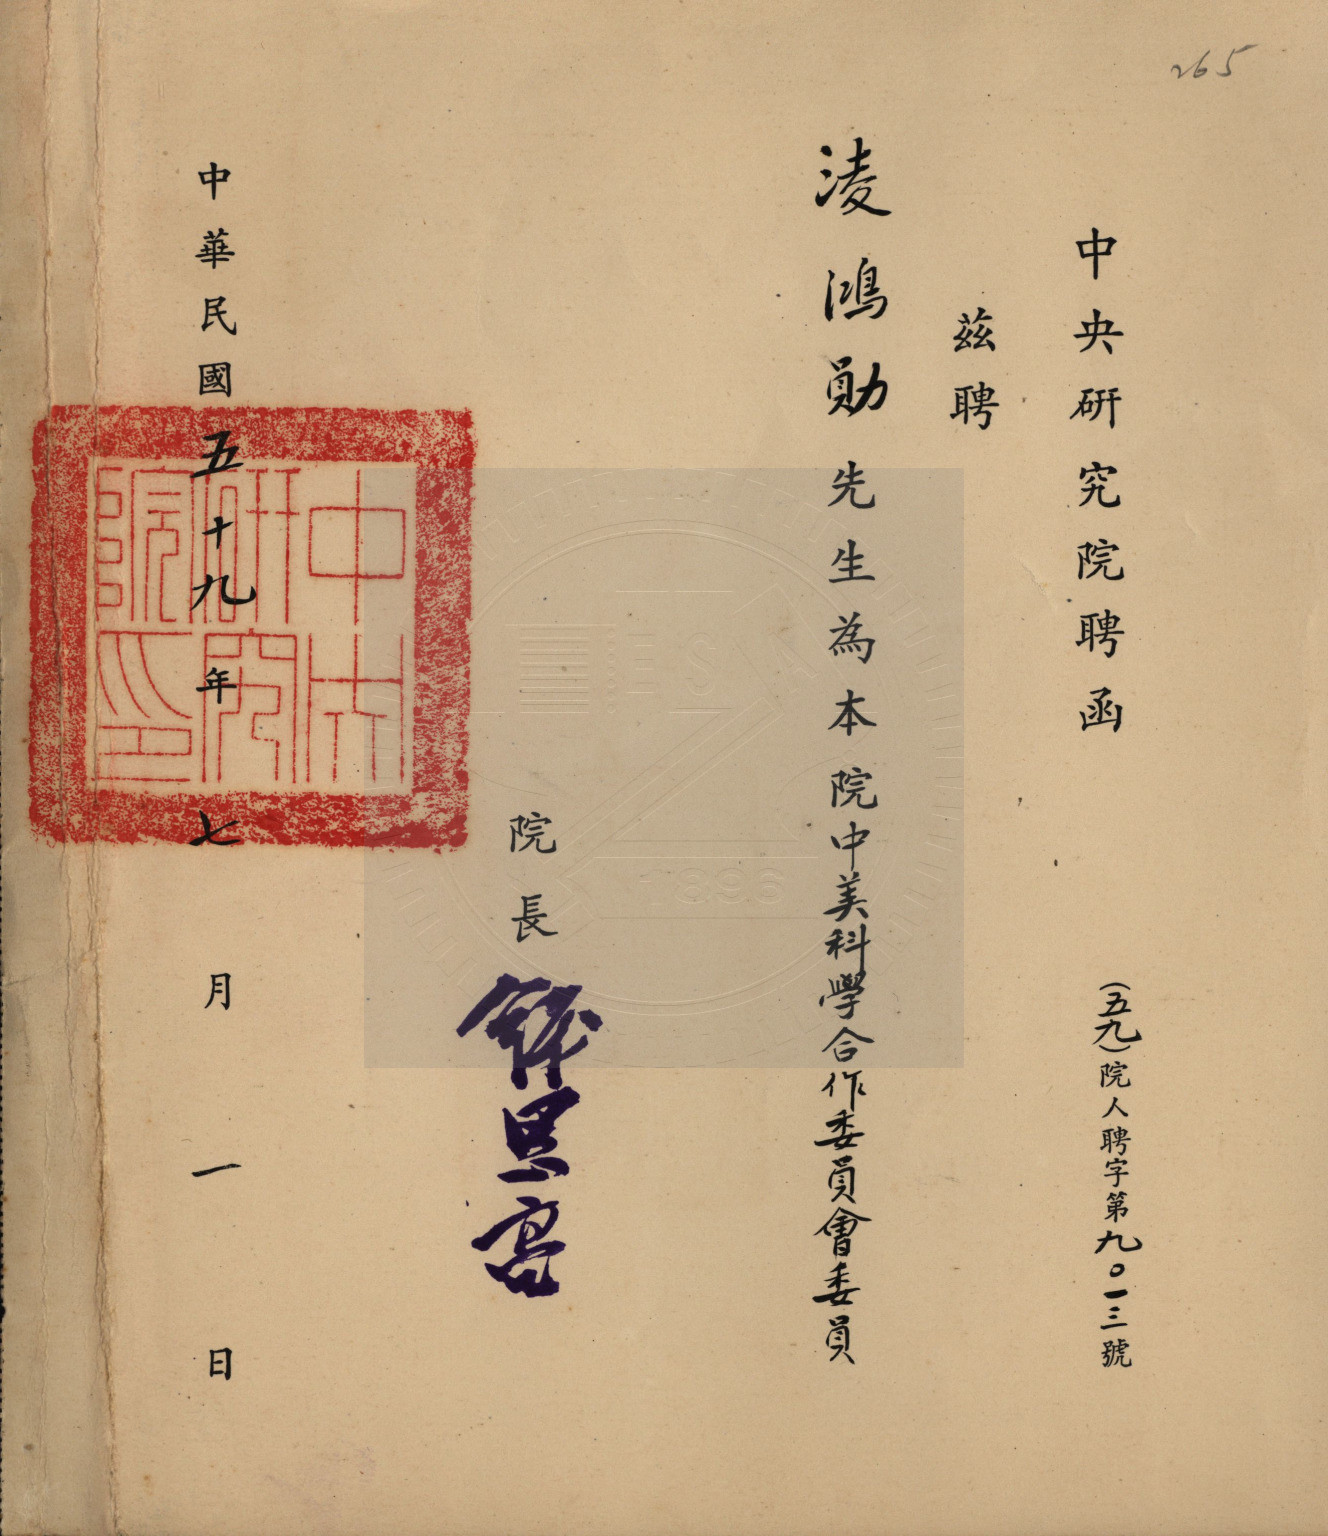 265
中央研究院聘函
(五九)院人聘字第九〇一三號
茲聘
淩鴻勛先生為本院中美科學合作委員會委員
院長錢思亮
中華民國五十九年七月一日
中央研究院印
1896